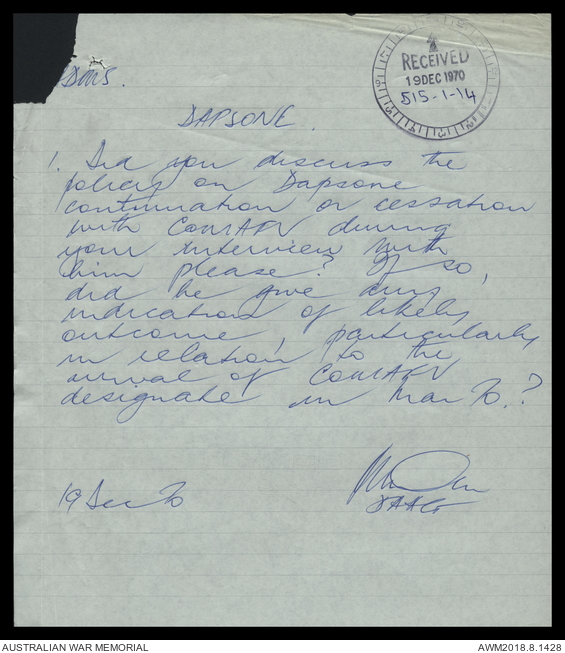 RECEIVED
19 DEC 1970
515-1-14
DMS.
DAPSONE.
1. Did you discuss the
policy on Dapsone
continuation or cessation
with COMAFV during
your interview with
him please? If so,
did he give any
indication of likely
outcome, particularly
in relation to the
arrival of COMAFV
designate in Mar 70.?
19 Dec 70
DAAG
AUSTRALIAN WAR MEMORIAL
AWM2018.8.1428